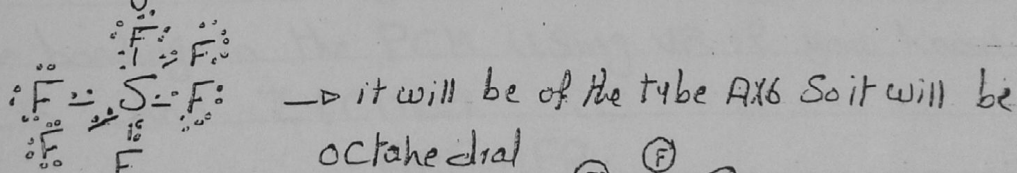 F F
F S F → it will be of the tybe AX6 So it will be
F F octahedral
F